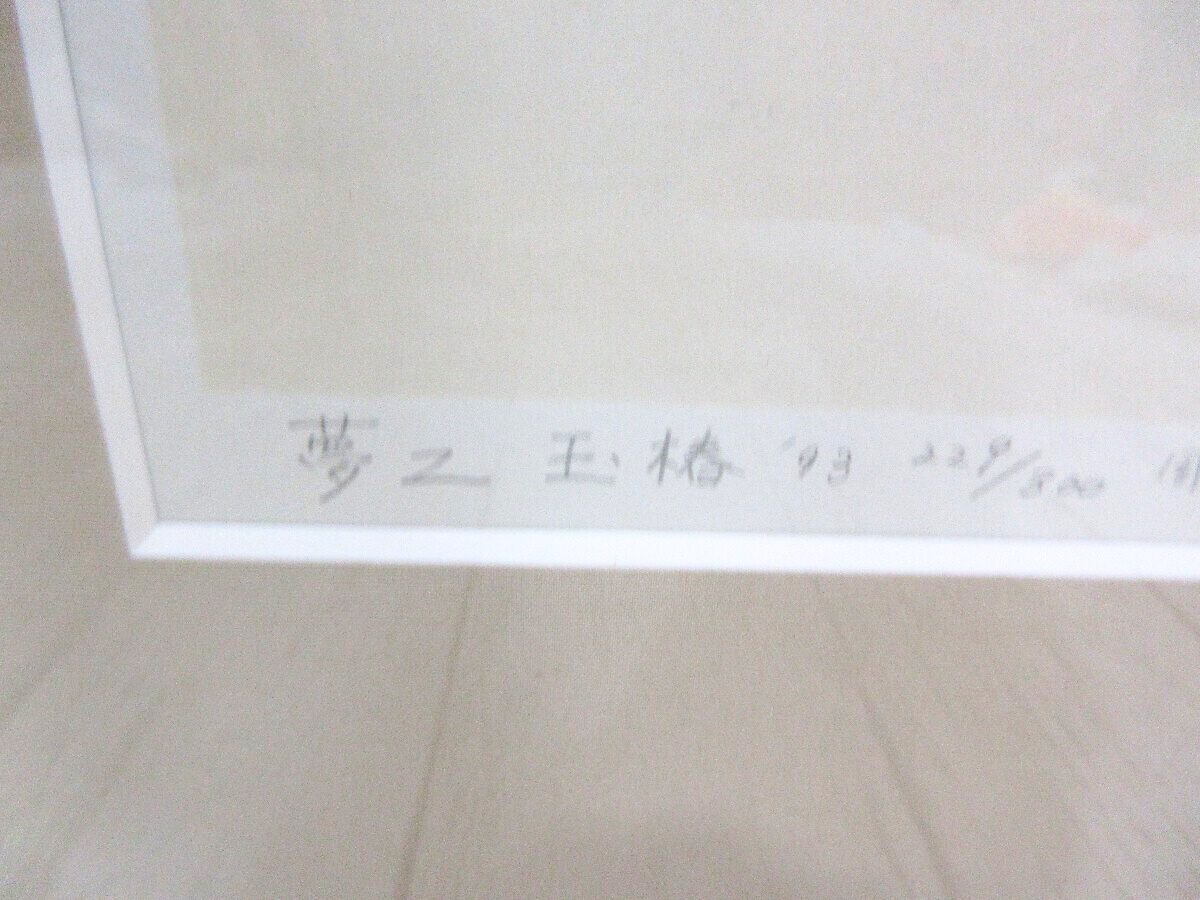 夢乙 玉椿 '93 229/800